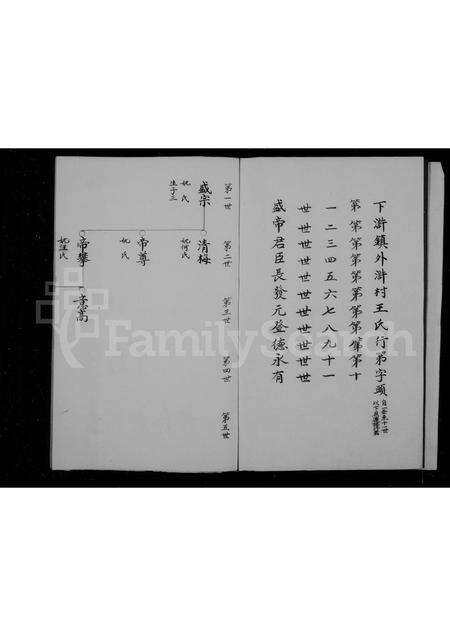 下滸鎮外滸村王氏行弟字頭
第一世盛
第二世帝
第三世君
第四世臣
第五世長
第六世發
第七世元
第八世登
第九世德
第十世永
第十一世有
第一世
盛宗
妣 氏
生子三
第二世
清梅
妣何氏
帝尊
妣 氏
帝攀
妣汪氏
第三世
嵩
第四世
第五世
FamilySearch